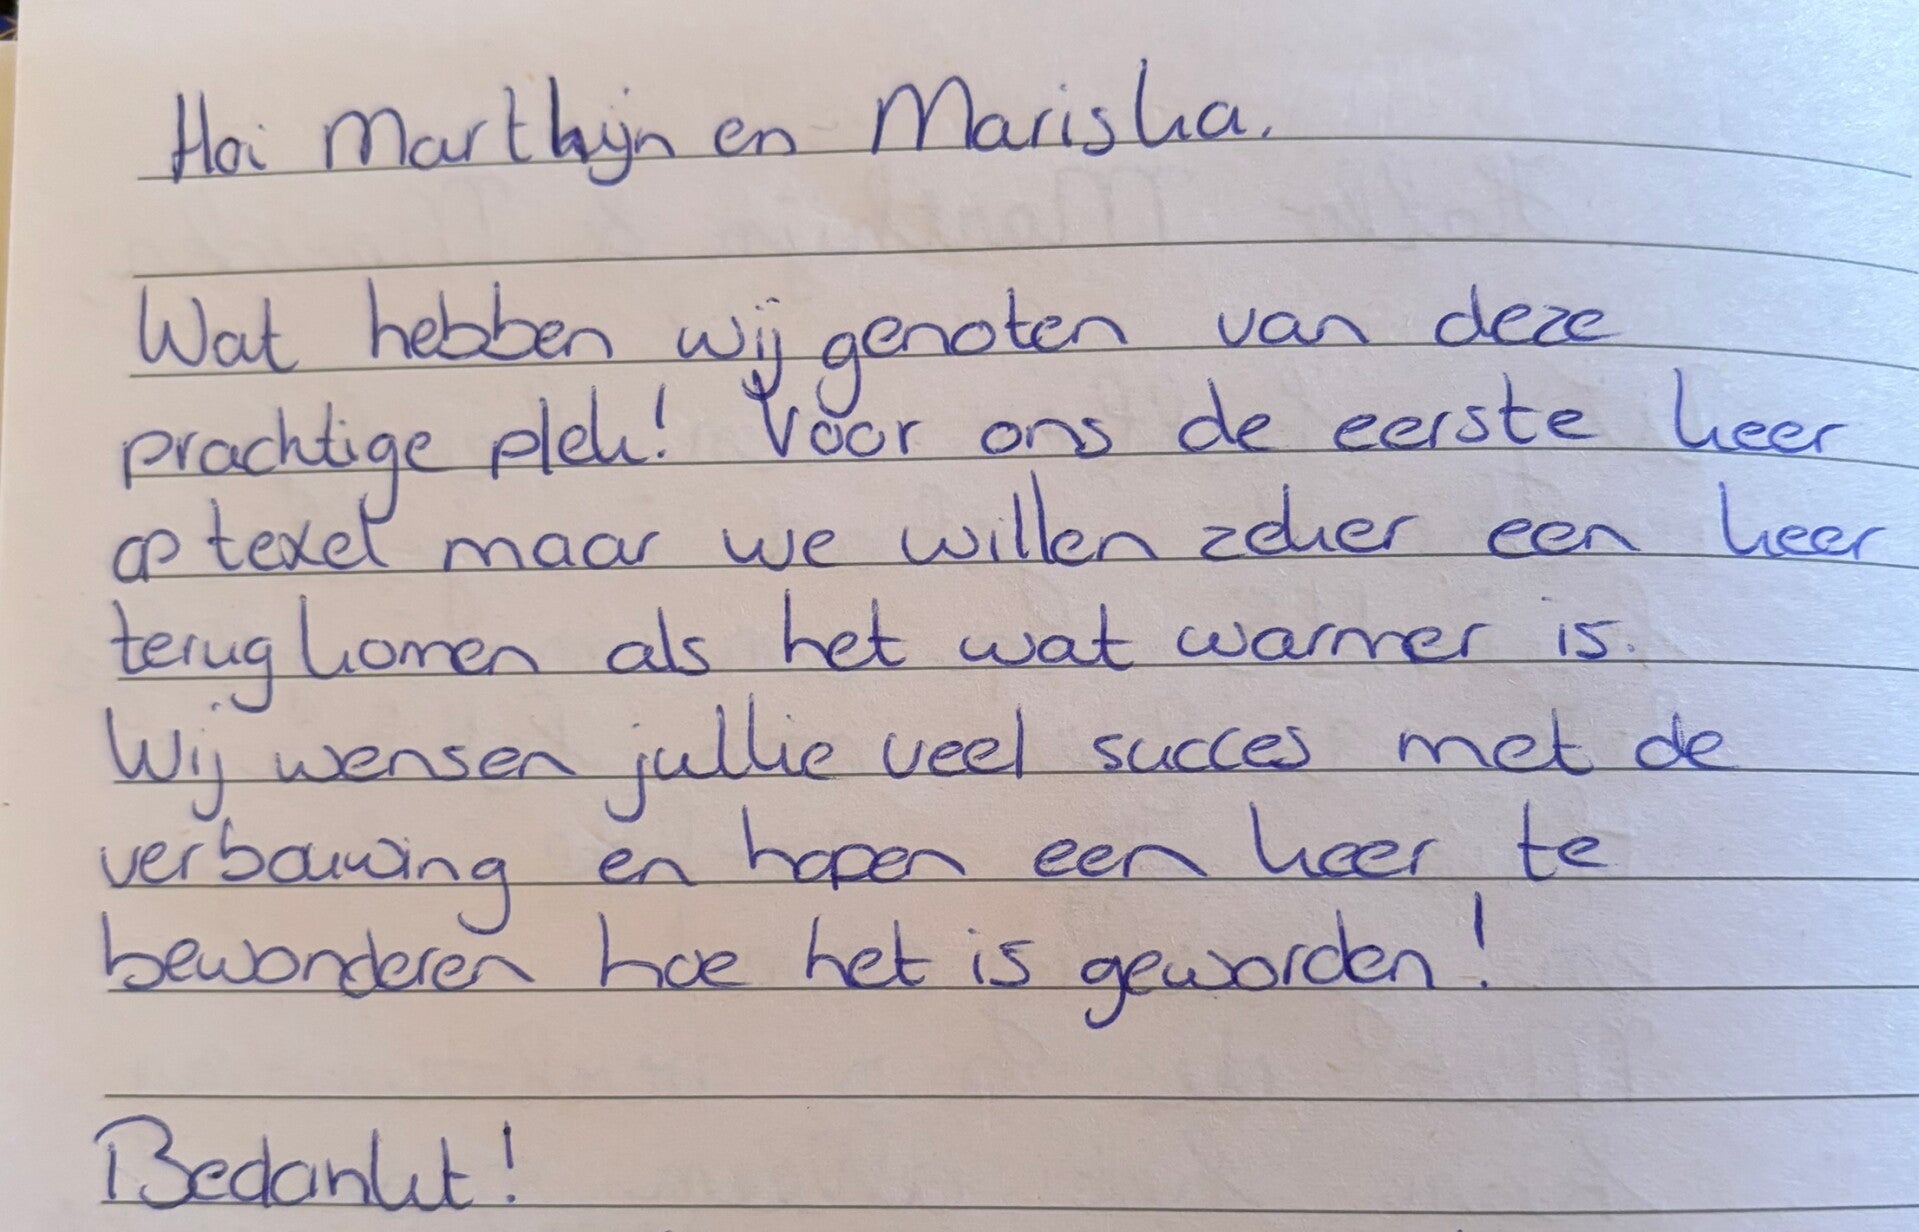 Hoi Marthijn en Mariska.
Wat hebben wij genoten van deze
prachtige plek! Voor ons de eerste keer
op texel maar we willen zeker een keer
terug komen als het wat warmer is.
Wij wensen jullie veel succes met de
verbouwing en hopen een keer te
bewonderen hoe het is geworden!
Bedankt!